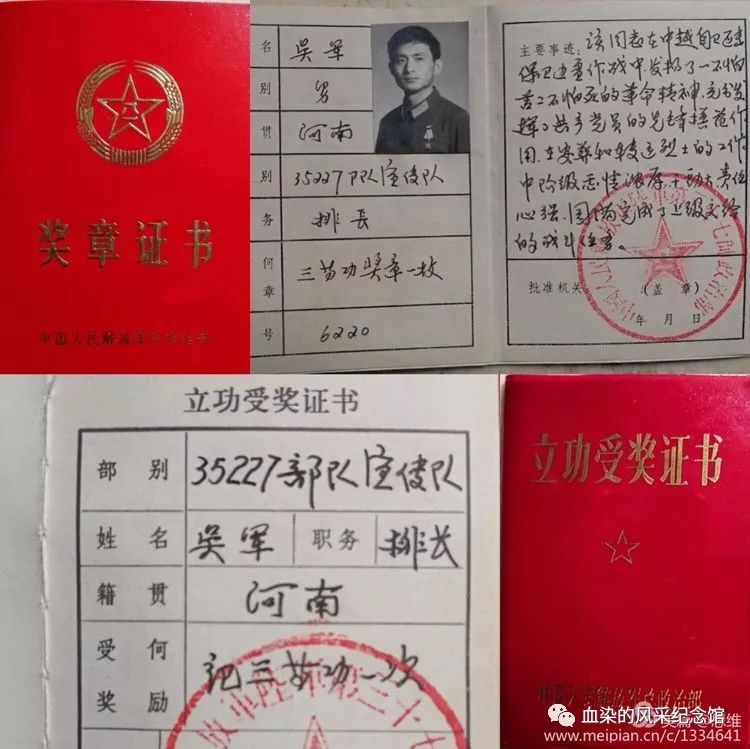 奖章证书
中国人民解放军总政治部
名 吴军
别 男
贯 河南
别 35227部队宣传队
务 排长
何章 三等功奖章一枚
号 6220
主要事迹：该同志在中越自卫还击
保卫边疆作战中，发扬了一不怕
苦二不怕死的革命精神，充分发
挥了共产党员的先锋模范作
用，在安葬和转运烈士的工作
中阶级感情浓厚，
心强，圆满完成了上级交给
的战斗任务。
批准机关： （盖章）
年 月 日
立功受奖证书
部别 35227部队宣传队
姓名 吴军 职务 排长
籍贯 河南
受何奖励 记三等功一次
立功受奖证书
中国人民解放军总政治部
血染的风采纪念馆
www.meipian.cn/c/1334641